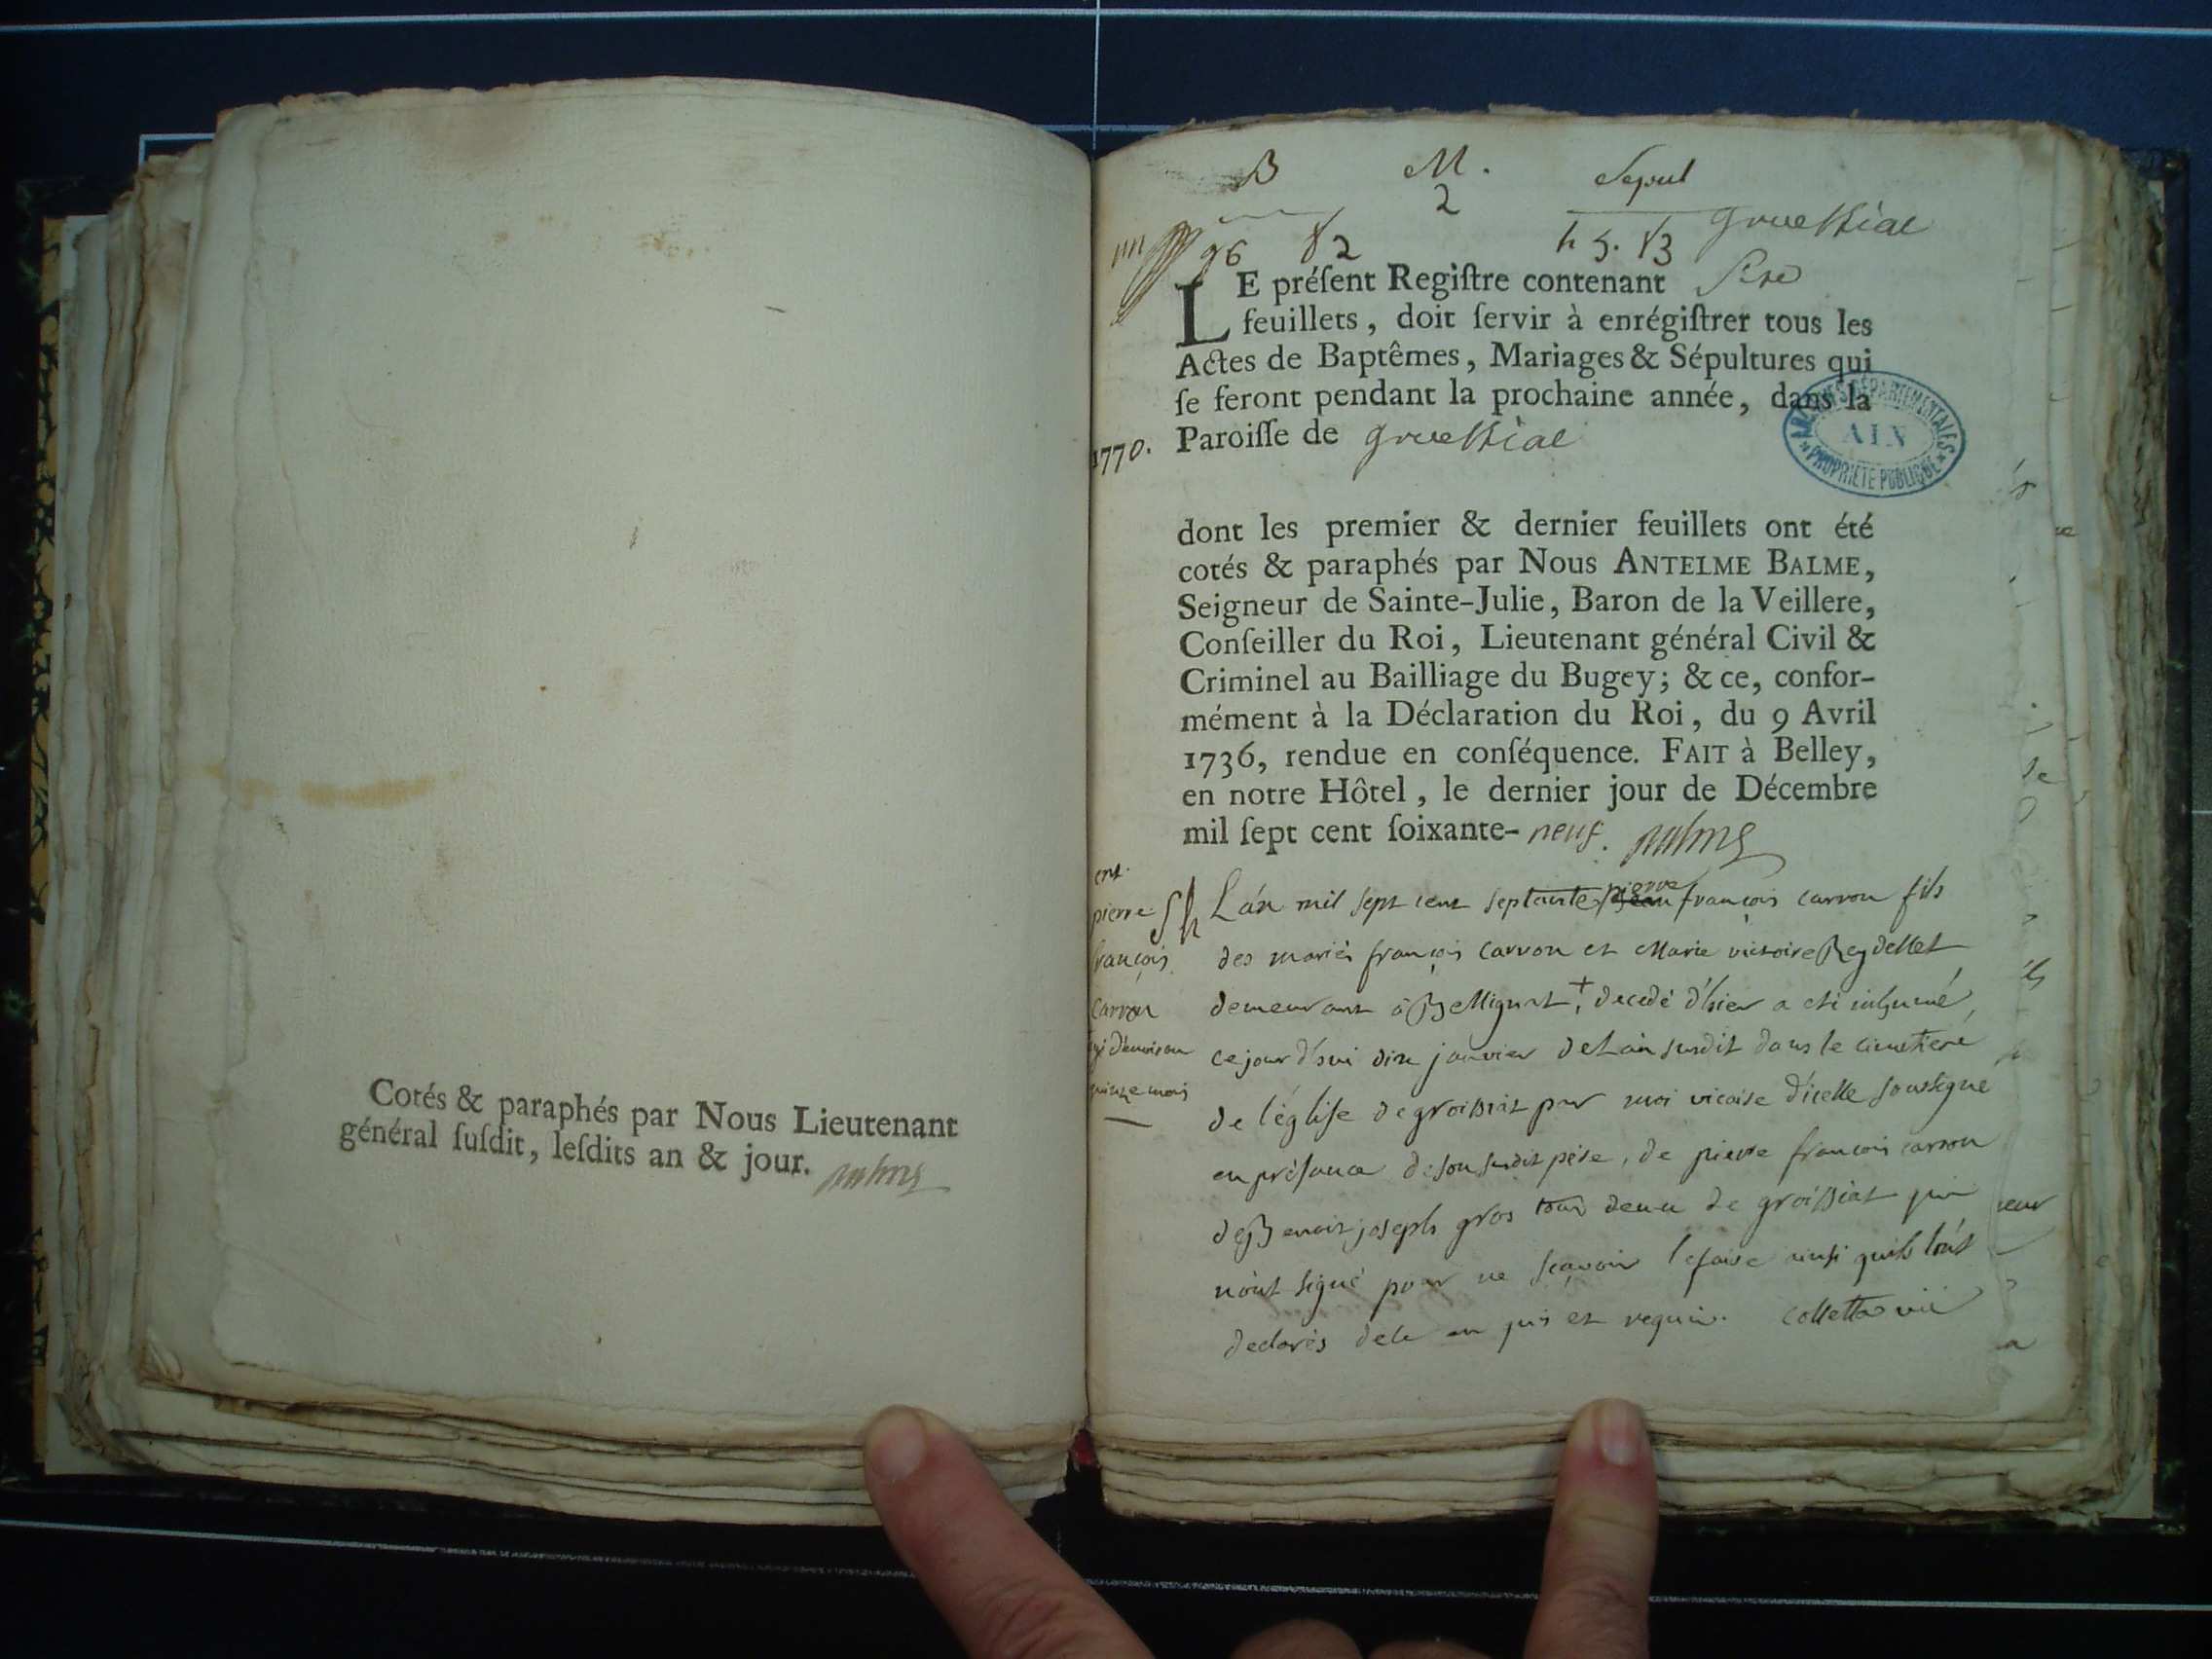 Cotés & paraphés par Nous Lieutenant
général ſuſdit, leſdits an & jour.
B M. Sepul
2
96 82
LE préſent Regiſtre contenant
feuillets, doit ſervir à enrégiſtrer tous les
Actes de Baptêmes, Mariages & Sépultures qui
ſe feront pendant la prochaine année, dans la
1770. Paroiſſe de
ARCHIVES DÉPARTEMENTALES
AIN
PROPRIÉTÉ PUBLIQUE
dont les premier & dernier feuillets ont été
cotés & paraphés par Nous ANTELME BALME,
Seigneur de Sainte-Julie, Baron de la Veillere,
Conſeiller du Roi, Lieutenant général Civil &
Criminel au Bailliage du Bugey; & ce, confor-
mément à la Déclaration du Roi, du 9 Avril
1736, rendue en conſéquence. FAIT à Belley,
en notre Hôtel, le dernier jour de Décembre
mil ſept cent ſoixante-neuf.
ent.
pierre
françois
Carron
d'environ
quinze mois
L'an mil sept cent septante pierre françois carron fils
des mariés françois Carron et Marie victoire Reydellet
demeurant à Bellignat +, decedé d'hier a eté inhumé
ce jourd'hui dix janvier de l'an susdit dans le cimetiere
de l'église de groissiat par moi vicaire d'icelle soussigné
en présance de son susdit père, de pierre françois carron
de Benoit joseph gros tous deux de groissiat qui
n'ont signé pour ne sçavoir le faire ainsi qu'ils l'ont
declarés de ce enquis et requis. Colletta vic